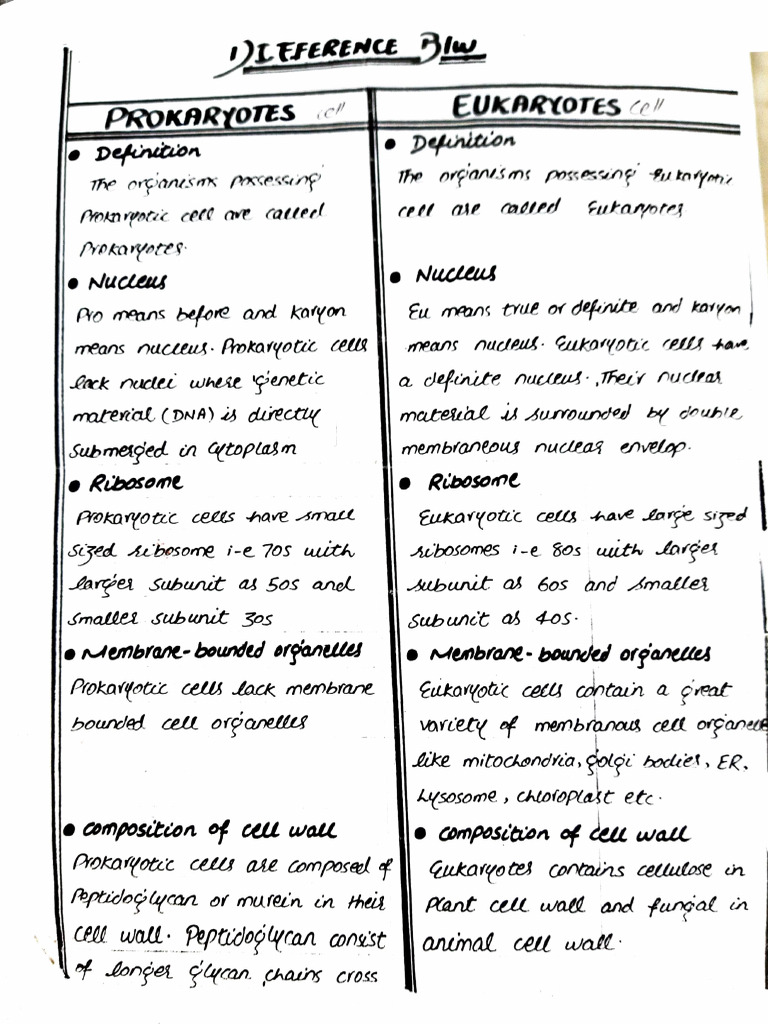 DIFFERENCE B/w
PROKARYOTES cell
• Definition
The organisms possessing
Prokaryotic cell are called
Prokaryotes.
• Nucleus
Pro means before and karyon
means nucleus. Prokaryotic cells
lack nuclei where genetic
material (DNA) is directly
submerged in cytoplasm
• Ribosome
Prokaryotic cells have small
sized ribosome i-e 70s with
larger subunit as 50s and
smaller subunit 30s
• Membrane-bounded organelles
Prokaryotic cells lack membrane
bounded cell organelles
• Composition of cell wall
Prokaryotic cells are composed of
Peptidoglycan or murein in their
cell wall. Peptidoglycan consist
of longer glycan chains cross
EUKARYOTES cell
• Definition
The organisms possessing Eukaryotic
cell are called Eukaryotes
• Nucleus
Eu means true or definite and karyon
means nucleus. Eukaryotic cells have
a definite nucleus. Their nuclear
material is surrounded by double
membraneous nuclear envelop.
• Ribosome
Eukaryotic cells have large sized
ribosomes i-e 80s with larger
subunit as 60s and smaller
subunit as 40s.
• Membrane-bounded organelles
Eukaryotic cells contain a great
variety of membranous cell organelle
like mitochondria, golgi bodies, ER,
Lysosome, chloroplast etc.
• Composition of cell wall
Eukaryotes contains cellulose in
Plant cell wall and fungal in
animal cell wall.